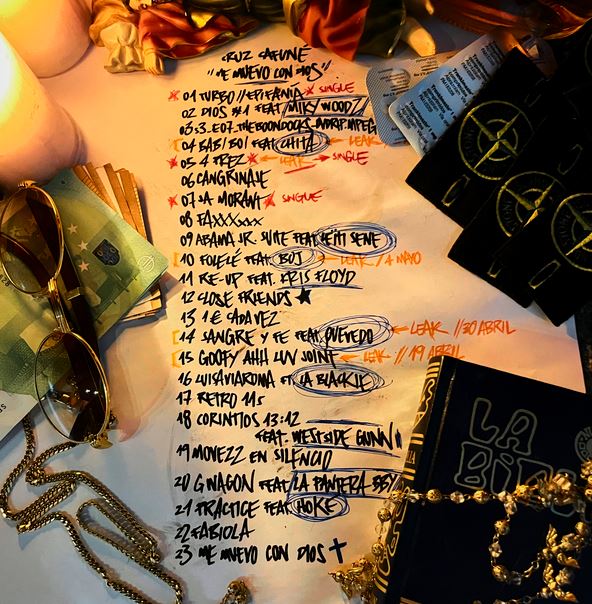 CRUZ CAFUNÉ
"ME MUEVO CON DIOS"
01 TURBO // EPIFANÍA SINGLE
02 DIOS #1 FEAT. MIKY WOODZ
03 S3_E07_THEBOONDOCKS_DVDRIP.MPEG
04 BAB/BOI FEAT CHITA ← LEAK
05 4 TREZ ← LEAK → SINGLE
06 CANGRINAJE
07 JA MORANT SINGLE
08 FAXXXXXX
09 ABAMA JR. SUITE FEAT. SENE
10 FOLELÉ FEAT. BOJ ← LEAK / 4 MAYO
11 RE-UP FEAT. KRIS FLOYD
12 CLOSE FRIENDS ★
13 1€ CADA VEZ
14 SANGRE Y FE FEAT. QUEVEDO ← LEAK // 30 ABRIL
15 GOOFY AHH LUV JOINT ← LEAK // 19 ABRIL
16 LUISAVIAROMA FT LA BLACKIE
17 RETRO 11s
18 CORINTIOS 13:12
FEAT. WESTSIDE GUNN
19 MOVEZZ EN SILENCIO
20 G WAGON FEAT. LA PANTERA BBY
21 PRACTICE FEAT. HOKE
22 FABIOLA
23 ME MUEVO CON DIOS ✝
LA